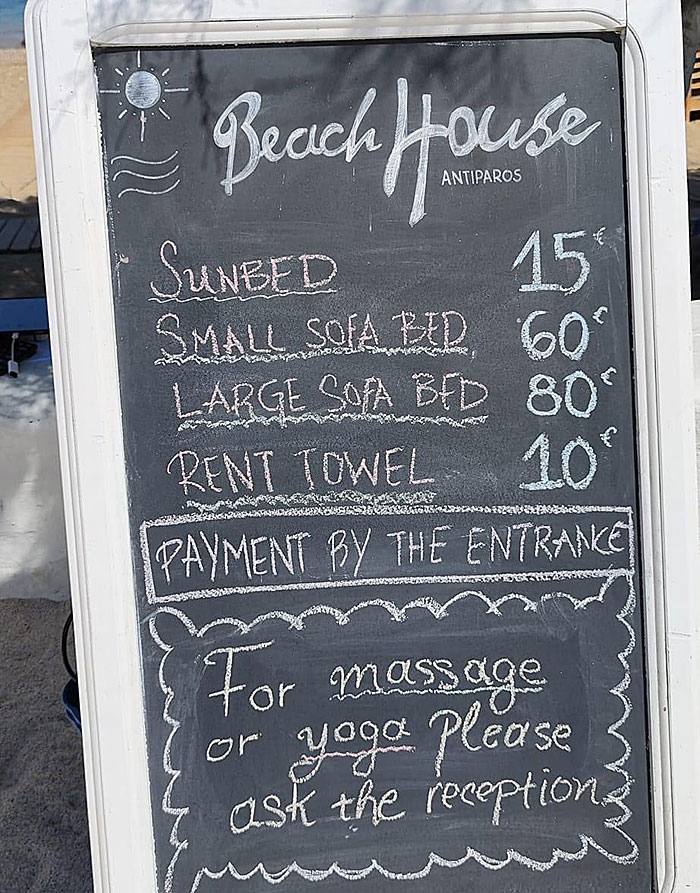 Beach House
ANTIPAROS
SUNBED 15€
SMALL SOFA BED 60€
LARGE SOFA BED 80€
RENT TOWEL 10€
PAYMENT BY THE ENTRANCE
For massage
or yoga Please
ask the reception